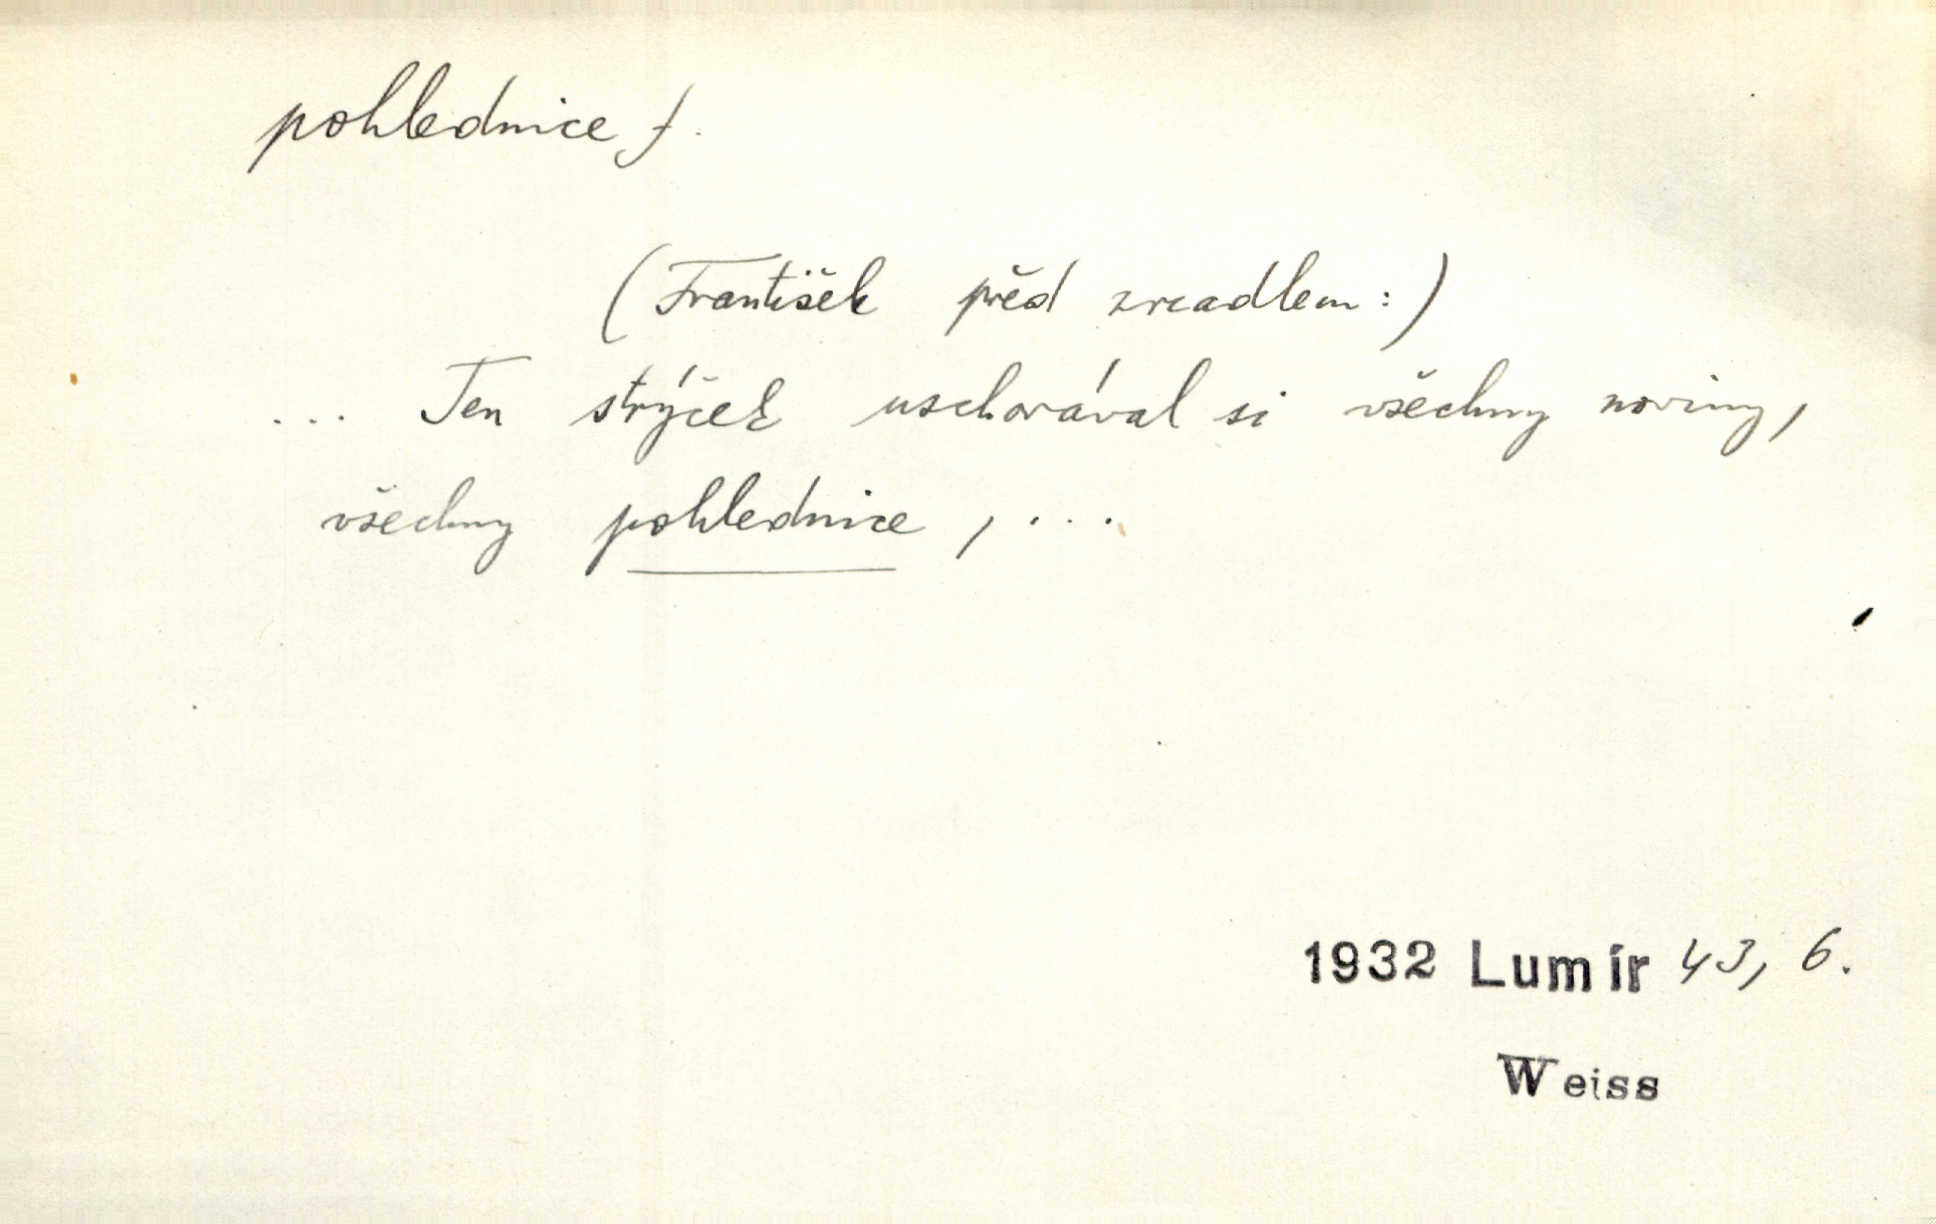 pohlednice f.
(František před zrcadlem:)
... Ten strýček uschovával si všechny noviny,
všechny pohlednice, ...
1932 Lumír 43, 6.
Weiss